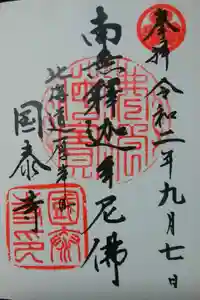 奉拝 令和二年九月七日
南無釋迦牟尼佛
北海道厚岸町
国泰寺